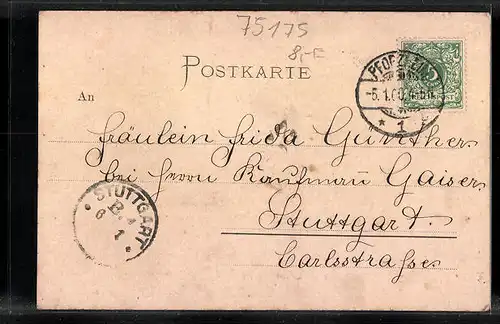 75175
8,-€
POSTKARTE
PFORZHEIM
-5.1.00.
* 1
An
Fräulein Frida Günther
bei Herrn Kaufmann Gaiser
Stuttgart.
Carlsstrasse
STUTTGART
B.
6 1